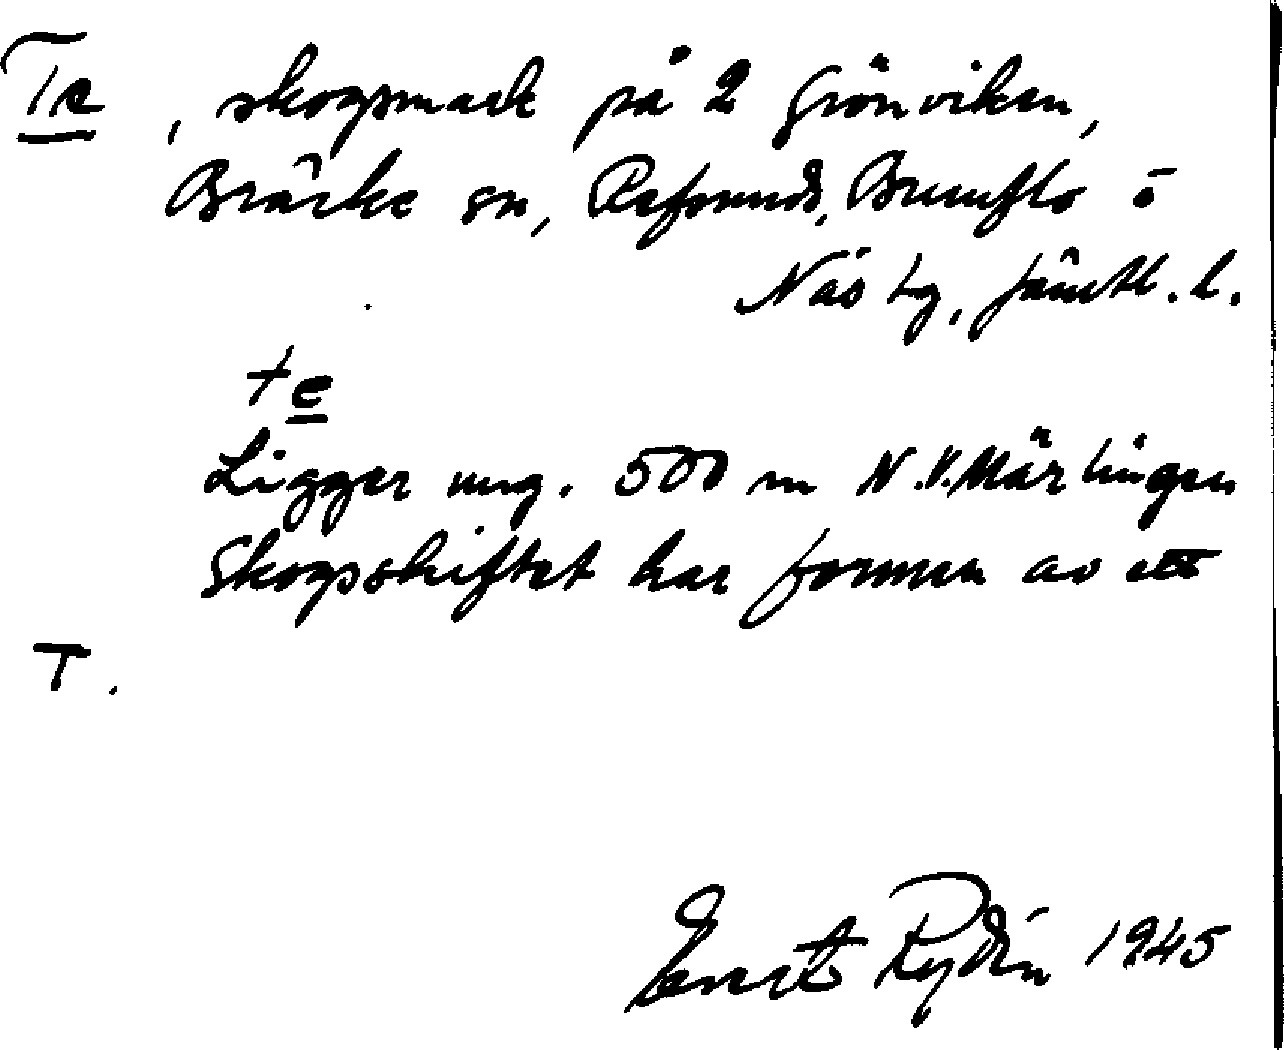 Te, skogsmark på 2 Grönviken,
Bräcke sn, Refsunds, Brunflo o
Näs tg, Jämtl. l.
te
Ligger ung. 500 m N.V. Märtingen
Skogsskiftet har formen av ett
T.
Ernst Rydén 1945